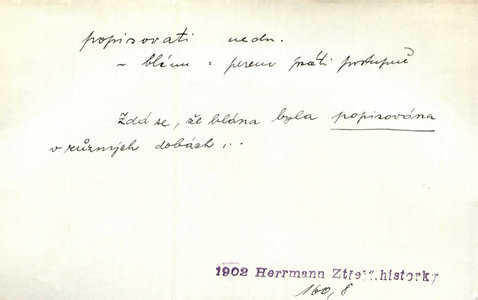 popisovati nedn.
~ blánu = perem psáti postupně
Zdá se, že blána byla popisována
v různých dobách...
1902 Herrmann Ztřešť.historky
160,8